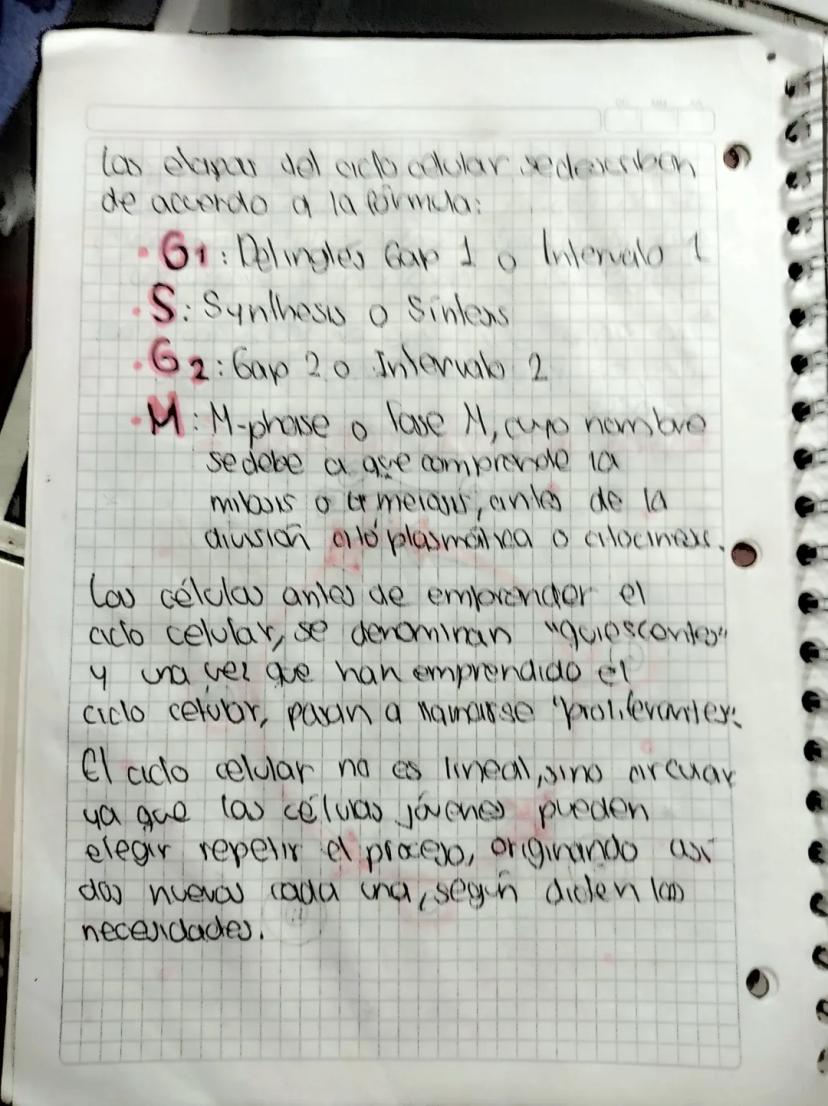 Las etapas del ciclo celular se describen
de acuerdo a la fórmula:
· G1: Del inglés Gap 1 o Intervalo 1
· S: Synthesis o Síntesis
· G2: Gap 2 o Intervalo 2
· M: M-phase o fase M, cuyo nombre
se debe a que comprende la
mitosis o meiosis, antes de la
división citoplasmática o citocinesis.
Las células antes de emprender el
ciclo celular, se denominan "quiescentes"
y una vez que han emprendido el
ciclo celular, pasan a llamarse "proliferantes".
El ciclo celular no es lineal, sino circular
ya que las células jóvenes pueden
elegir repetir el proceso, originando así
dos nuevas cada una, según dicten las
necesidades.